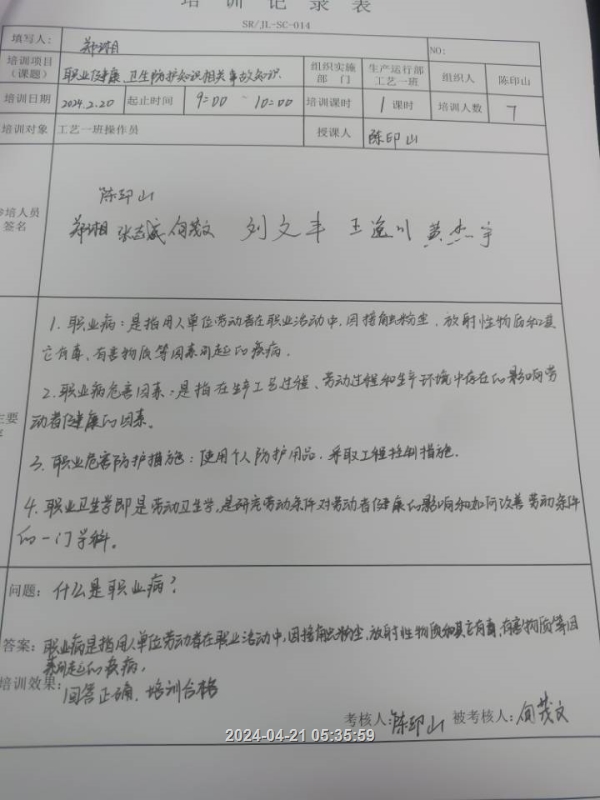 培训记录表
SR/JL-SC-014
填写人: 郑湘 NO:
培训项目(课题) 职业健康 卫生防护知识相关事故知识. 组织实施部门 生产运行部工艺一班 组织人 陈印山
培训日期 2024.2.20 起止时间 9:00 - 10:00 培训课时 1课时 培训人数 7
培训对象 工艺一班操作员 授课人 陈印山
陈印山
参培人员签名 郑湘 何茂文 刘文丰 王逸川 黄杰宇
1. 职业病:是指用人单位劳动者在职业活动中,因接触粉尘、放射性物质和其
它有毒、有害物质等因素引起的疾病.
2. 职业病危害因素:是指在生产工艺过程、劳动过程和生产环境中存在的影响劳
动者健康的因素。
主要
3. 职业危害防护措施:使用个人防护用品.采取工程控制措施.
4. 职业卫生学即是劳动卫生学,是研究劳动条件对劳动者健康的影响和如何改善劳动条件
的一门学科。
问题: 什么是职业病?
答案: 职业病是指用人单位劳动者在职业活动中,因接触粉尘,放射性物质和其它有毒,有害物质等因
素引起的疾病.
培训效果: 回答正确、培训合格
考核人: 陈印山 被考核人: 何茂文
2024-04-21 05:35:59